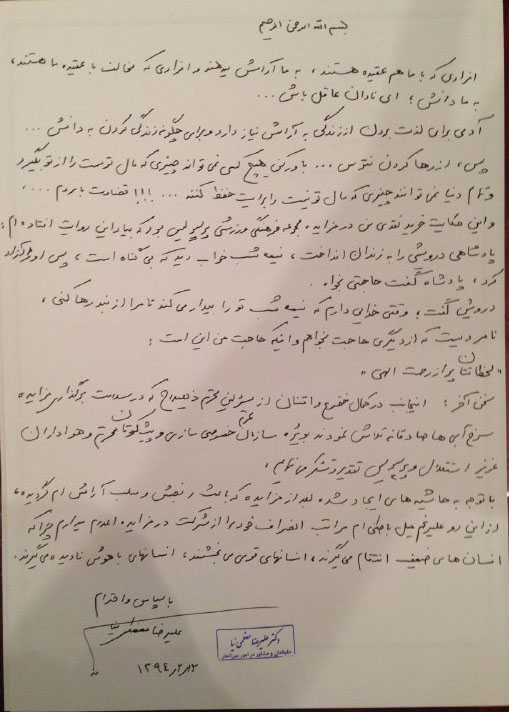 بسم الله الرحمن الرحیم
افرادی که با ما هم عقیده هستند، به ما آرامش میدهند و افرادی که مخالف با عقیده ما هستند،
به ما دانش؛ ای نادان عاقل باش ...
آدمی برای لذت بردن از زندگی به آرامش نیاز دارد و برای چگونه زندگی کردن به دانش ...
پس، از رها کردن نترس ... باور کن هیچ کس نمی تواند چیزی که مال توست را از تو بگیرد
و تمام دنیا نمی توانند چیزی که مال تو نیست را برایت حفظ کنند ... !!! قضاوت با مردم ...،
و این حکایت خرید نقدی من در مزایده مجموعه فرهنگی ورزشی پرسپولیس بود که بیاد این روایت افتاده ام:
پادشاهی درویشی را به زندان انداخت، نیمه شب خواب دید که بی گناه است، پس او را آزاد
کرد، پادشاه گفت حاجتی بخواه.
درویش گفت: وقتی خدایی دارم که نیمه شب تو را بیدار می کند تا مرا از بند رها کنی،
نامردیست که از دیگری حاجت بخواهم و اینکه حاجت من این است:
"لحظاتتان پر از رحمت الهی"
سخن آخر: اینجانب در کمال خضوع و امتنان از مسئولین محترم ذیصلاح که در سلامت برگزاری مزایده
سرخ آبی ها صادقانه تلاش نمودند بویژه سازمان محترم خصوصی سازی و پیشکسوتان محترم و هواداران
عزیز استقلال و پرسپولیس تقدیر و تشکر می نمایم.
با توجه به حاشیه های ایجاد شده بعد از مزایده که باعث رنجش و سلب آرامش ام گردیده،
از این رو علیرغم میل باطنی ام مراتب انصراف خود را از شرکت در مزایده اعلام میدارم چرا که
انسان های ضعیف انتقام می گیرند، انسانهای قوی می بخشند، انسانهای باهوش نادیده می گیرند.
با سپاس و احترام
علیرضا
دکتر علیرضا
۱۳۹۴